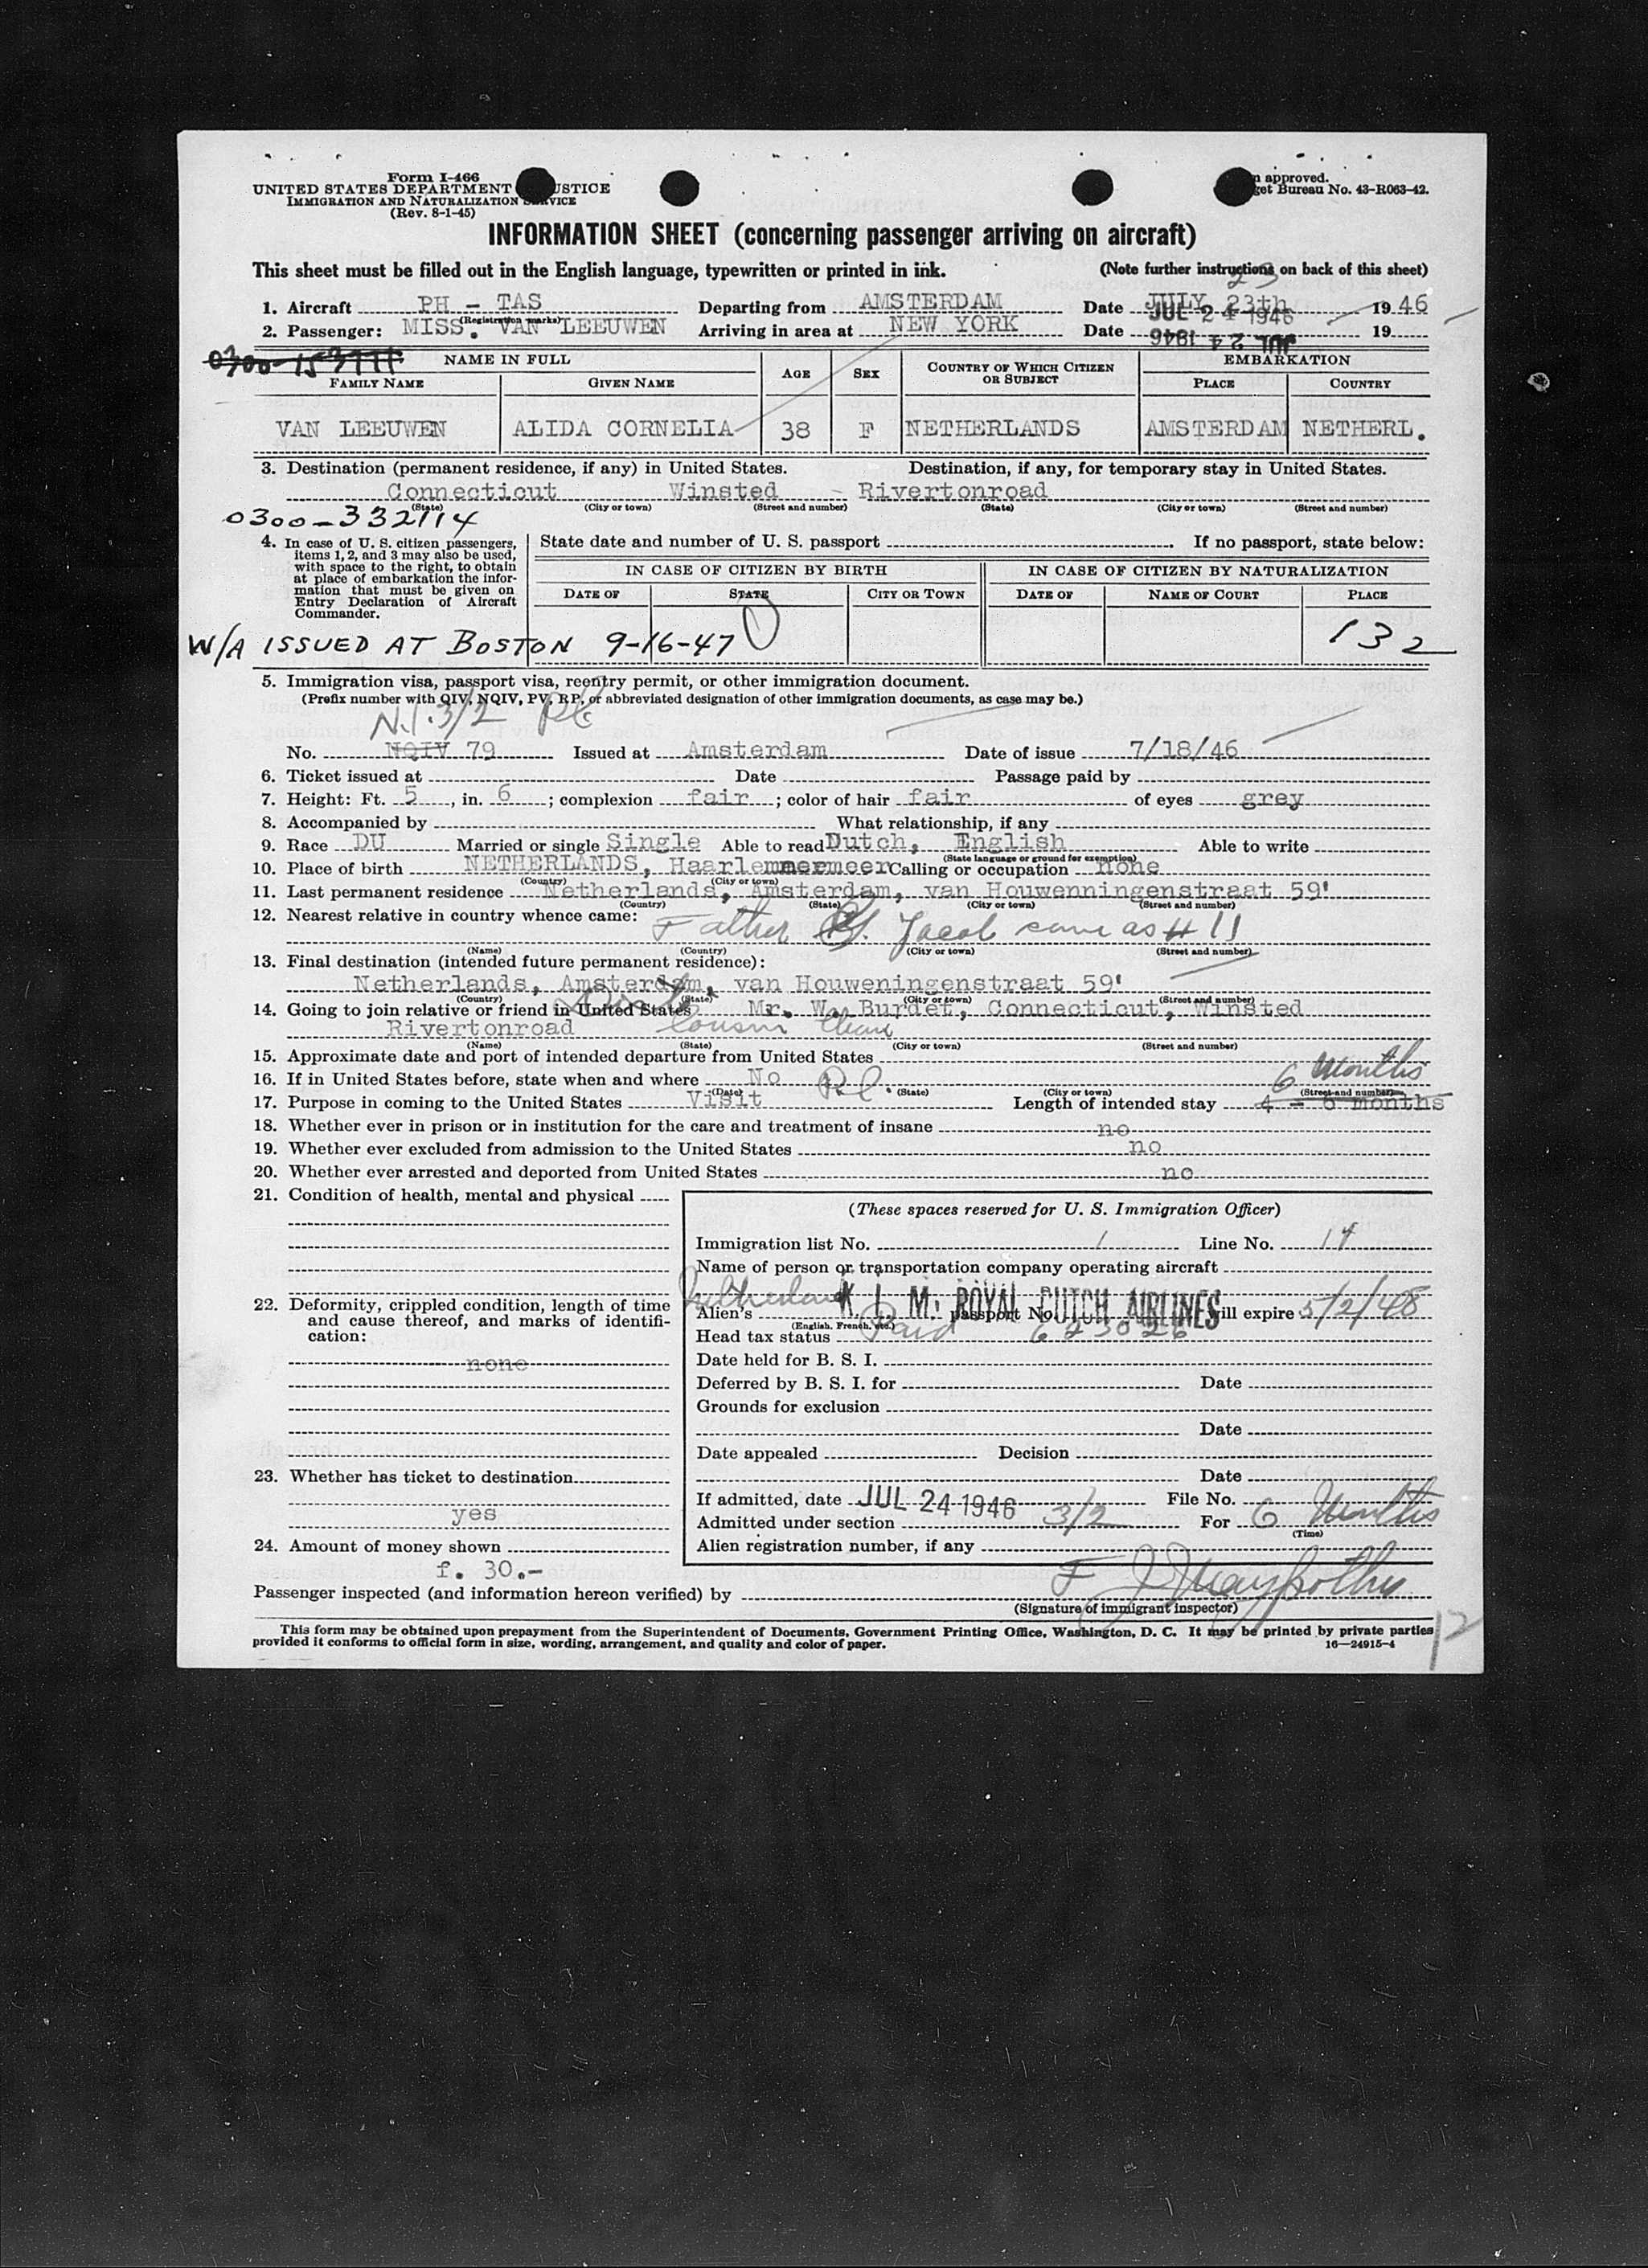 Form I-466
UNITED STATES DEPARTMENT USTICE
IMMIGRATION AND NATURALIZATION SERVICE
(Rev. 8-1-45)
approved.
get Bureau No. 43-R063-42.
INFORMATION SHEET (concerning passenger arriving on aircraft)
This sheet must be filled out in the English language, typewritten or printed in ink. (Note further instructions on back of this sheet)
23
1. Aircraft PH - TAS Departing from AMSTERDAM Date JULY 23th 1946
(Registration marks) JUL 24 1946
2. Passenger: MISS. VAN LEEUWEN Arriving in area at NEW YORK Date JUL 24 1946 19
NAME IN FULL AGE SEX COUNTRY OF WHICH CITIZEN OR SUBJECT EMBARKATION
FAMILY NAME GIVEN NAME PLACE COUNTRY
VAN LEEUWEN ALIDA CORNELIA 38 F NETHERLANDS AMSTERDAM NETHERL.
3. Destination (permanent residence, if any) in United States. Destination, if any, for temporary stay in United States.
Connecticut Winsted - Rivertonroad
(State) (City or town) (Street and number) (State) (City or town) (Street and number)
0300-332114
4. In case of U. S. citizen passengers, items 1, 2, and 3 may also be used, with space to the right, to obtain at place of embarkation the information that must be given on Entry Declaration of Aircraft Commander.
State date and number of U. S. passport . If no passport, state below:
IN CASE OF CITIZEN BY BIRTH IN CASE OF CITIZEN BY NATURALIZATION
DATE OF STATE CITY OR TOWN DATE OF NAME OF COURT PLACE
W/A ISSUED AT BOSTON 9-16-47 132
5. Immigration visa, passport visa, reentry permit, or other immigration document.
(Prefix number with QIV, NQIV, PV, RP, or abbreviated designation of other immigration documents, as case may be.)
N.I. 3/2
No. NQIV 79 Issued at Amsterdam Date of issue 7/18/46
6. Ticket issued at Date Passage paid by
7. Height: Ft. 5, in. 6; complexion fair; color of hair fair of eyes grey
8. Accompanied by What relationship, if any
9. Race DU Married or single Single Able to read Dutch, English Able to write
(State language or ground for exemption)
10. Place of birth NETHERLANDS, Haarlemmermeer Calling or occupation none
(Country) (City or town)
11. Last permanent residence Netherlands, Amsterdam, van Houwenningenstraat 59'
(Country) (State) (City or town) (Street and number)
12. Nearest relative in country whence came: Father Jacob same as # 11
(Name) (Country) (City or town) (Street and number)
13. Final destination (intended future permanent residence):
Netherlands, Amsterdam, van Houweningenstraat 59'
(Country) (State) (City or town) (Street and number)
14. Going to join relative or friend in United States Mr. W. Burdet, Connecticut, Winsted
Rivertonroad Cousin
(Name) (State) (City or town) (Street and number)
15. Approximate date and port of intended departure from United States
6 Months
16. If in United States before, state when and where No
(Date) (State) (City or town) (Street and number)
17. Purpose in coming to the United States Visit Length of intended stay 4 - 6 months
18. Whether ever in prison or in institution for the care and treatment of insane no
19. Whether ever excluded from admission to the United States no
20. Whether ever arrested and deported from United States no
21. Condition of health, mental and physical
22. Deformity, crippled condition, length of time and cause thereof, and marks of identification:
none
23. Whether has ticket to destination
yes
24. Amount of money shown
f. 30.-
(These spaces reserved for U. S. Immigration Officer)
Immigration list No. 1 Line No. 14
Name of person or transportation company operating aircraft
K. L. M. ROYAL DUTCH AIRLINES
Alien's Netherland passport No. 623026 will expire 5/2/48
(English, French, etc.)
Head tax status Paid
Date held for B. S. I.
Deferred by B. S. I. for Date
Grounds for exclusion
Date
Date appealed Decision
Date
If admitted, date JUL 24 1946 File No.
Admitted under section 3/2 For 6 Months
(Time)
Alien registration number, if any
Passenger inspected (and information hereon verified) by
(Signature of immigrant inspector)
This form may be obtained upon prepayment from the Superintendent of Documents, Government Printing Office, Washington, D. C. It may be printed by private parties
provided it conforms to official form in size, wording, arrangement, and quality and color of paper. 16—24915-4
12